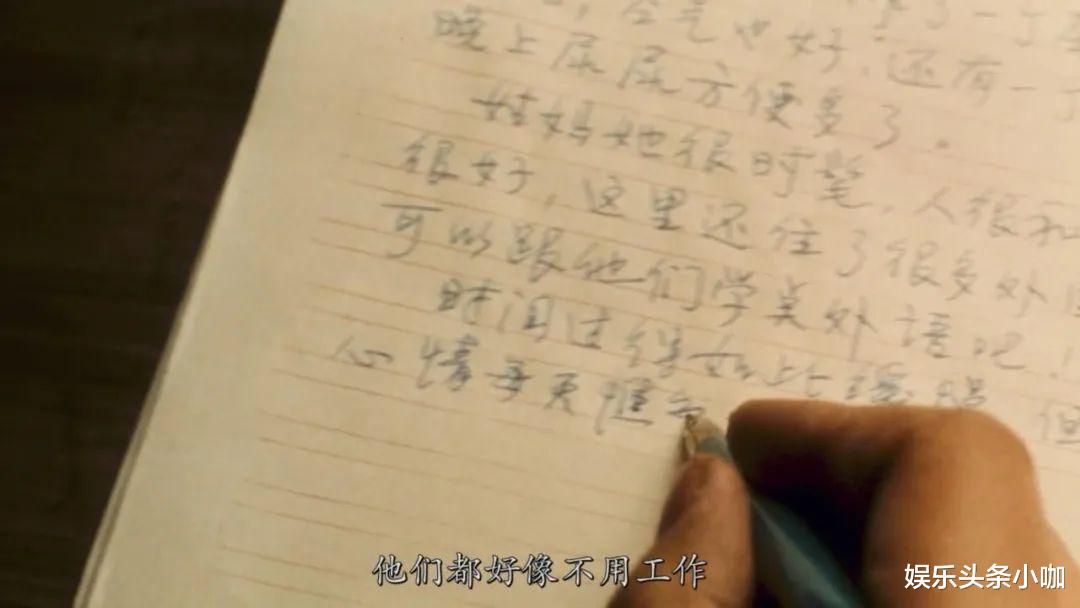 空气也好，还有一
晚上尿尿方便多了。
姑妈她很时髦，人很和
很好，这里还住了很多外
可以跟他们学美外语吧！
时间过得如此 但
心情每天
他们都好像不用工作
娱乐头条小咖